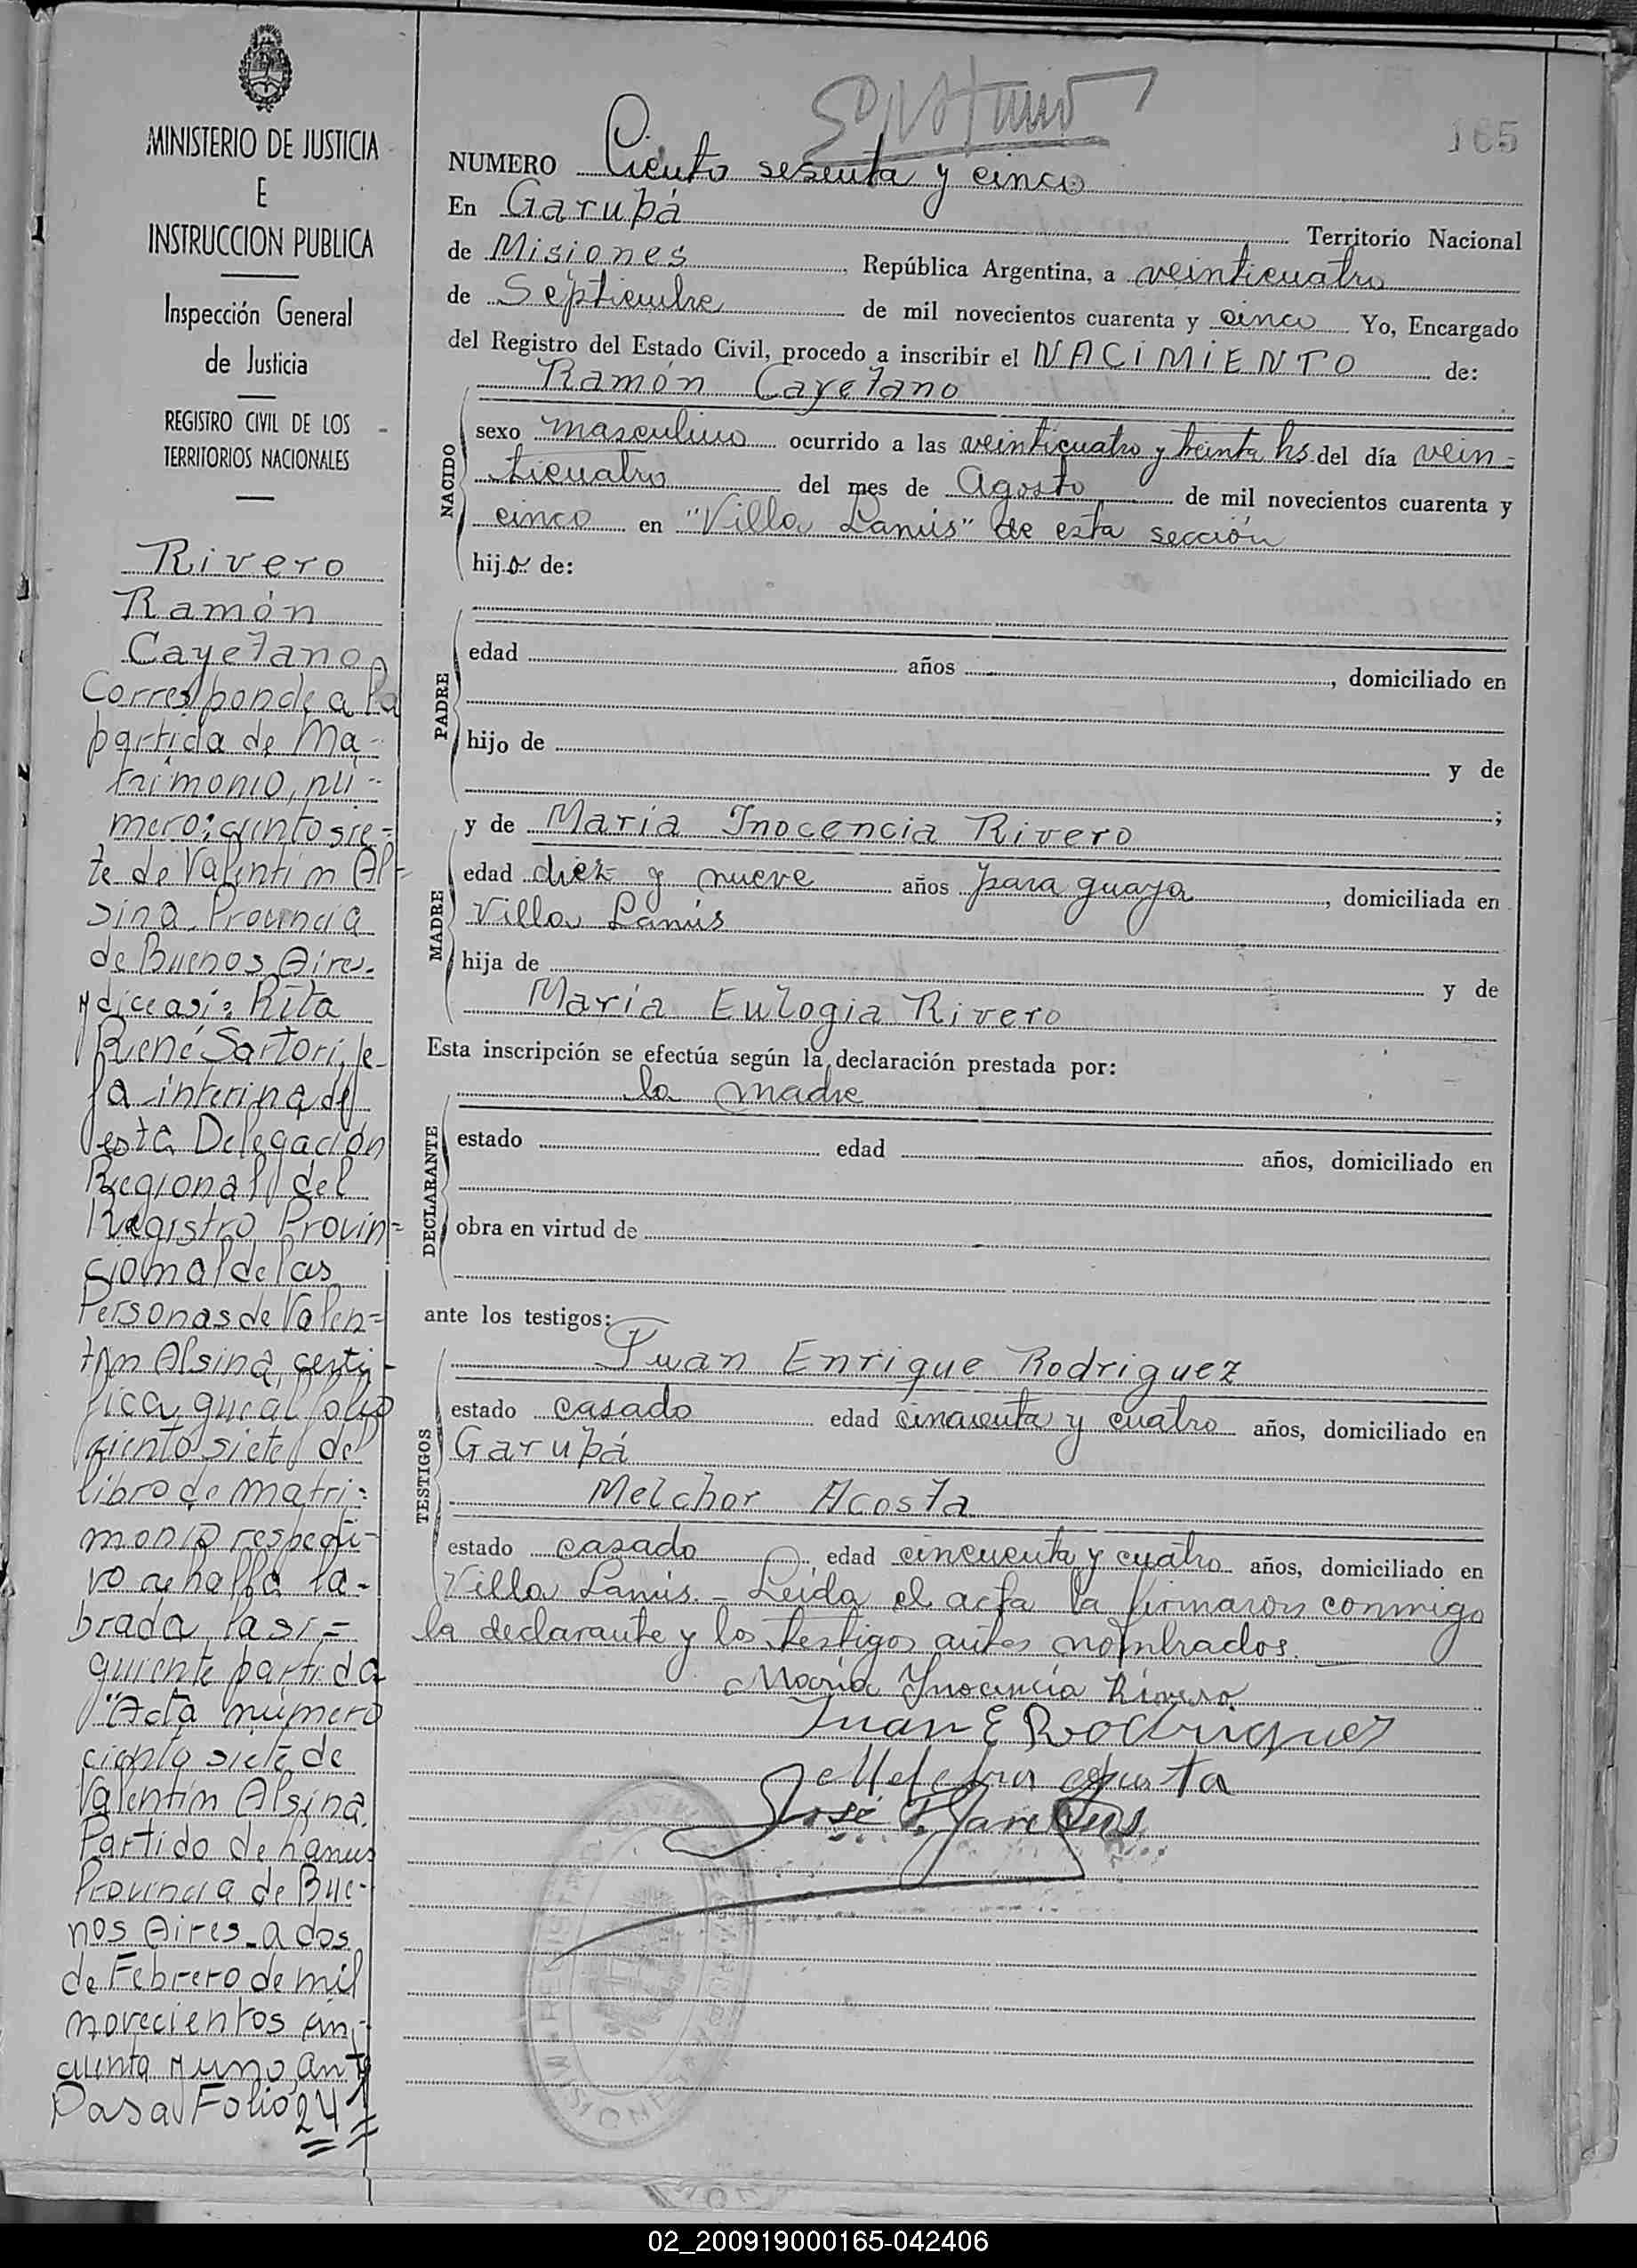 MINISTERIO DE JUSTICIA
E
INSTRUCCION PUBLICA
Inspección General
de Justicia
REGISTRO CIVIL DE LOS
TERRITORIOS NACIONALES
Rivero
Ramón
Cayetano
Corresponde a la
partida de Ma-
trimonio, nú-
mero: ciento sie=
te de Valentín Al=
sina, Provincia
de Buenos Aires.
y dice así: Rita
René Sartori, Je-
fa interina de
esta Delegación
Regional del
Registro Provin=
cional de las
Personas de Valen=
tín Alsina, certi-
fica, que al folio
ciento siete del
libro de matri=
monio respecti-
vo se halla la-
brada, la si=
guiente partida
"Acta número
ciento siete de
Valentín Alsina.
Partido de Lanus
Provincia de Bue-
nos Aires. a dos
de Febrero de mil
novecientos cin-
cuenta y uno, ante
Pasa Folio 241
165
NUMERO Ciento sesenta y cinco
En Garupá Territorio Nacional
de Misiones República Argentina, a veinticuatro
de Septiembre de mil novecientos cuarenta y cinco Yo, Encargado
del Registro del Estado Civil, procedo a inscribir el NACIMIENTO de:
Ramón Cayetano
NACIDO
sexo masculino ocurrido a las veinticuatro y treinta hs. del día vein=
ticuatro del mes de Agosto de mil novecientos cuarenta y
cinco en "Villa Lanús" de esta sección
hijo de:
PADRE
edad años , domiciliado en
hijo de y de
;
MADRE
y de María Inocencia Rivero
edad diez y nueve años paraguaya, domiciliada en
Villa Lanús
hija de y de
María Eulogia Rivero
Esta inscripción se efectúa según la declaración prestada por:
la madre
DECLARANTE
estado edad años, domiciliado en
obra en virtud de
ante los testigos:
TESTIGOS
Juan Enrique Rodriguez
estado casado edad cincuenta y cuatro años, domiciliado en
Garupá
Melchor Acosta
estado casado edad cincuenta y cuatro años, domiciliado en
Villa Lanús. - Leída el acta la firmaron conmigo
la declarante y los testigos antes nombrados.
María Inocencia Rivero
Juan E Rodriguez
Melchor Acosta
José
02_200919000165-042406